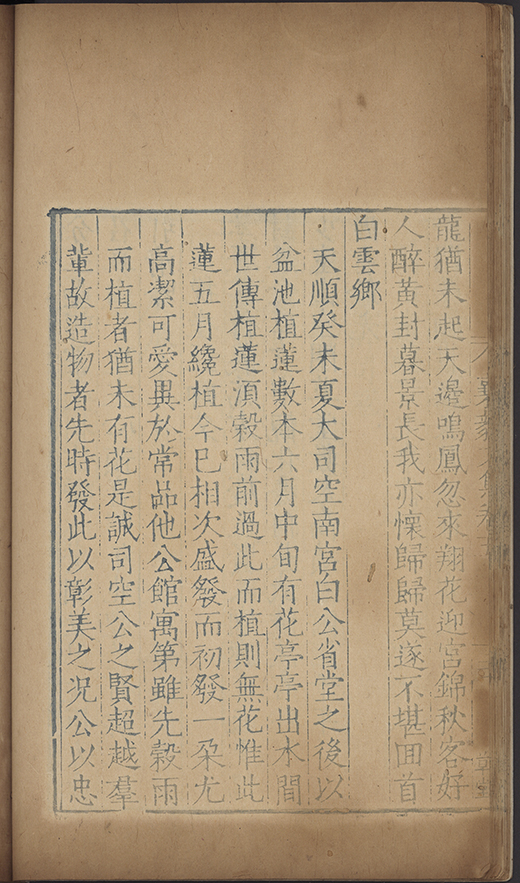 龍猶未起天邊鳴鳳忽來翔花迎宮錦秋客好
人醉黃封暮景長我亦懷歸歸莫遂不堪囬首
白雲鄉
天順癸未夏大司空南宮白公省堂之後以
盆池植蓮數本六月中旬有花亭亭出水間
世傳植蓮湏穀雨前過此而植則無花惟此
蓮五月纔植今已相次盛發而初發一朶尤
高潔可愛異於常品他公館寓第雖先穀雨
而植者猶未有花是誠司空公之賢超越羣
輩故造物者先時發此以彰美之况公以忠